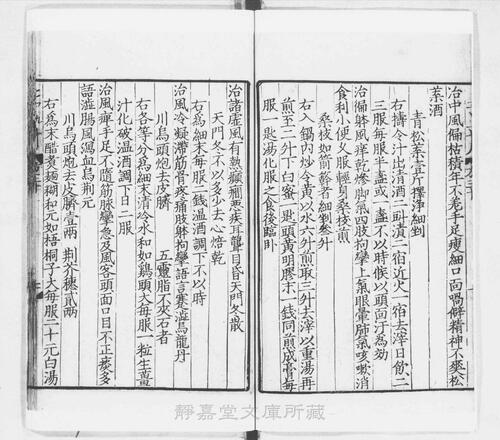 治中風偏枯積年不差手足瘦細口面喎僻精神不爽松
葉酒
青松葉壹斤擇淨細剉
右擣令汁出清酒二㪷漬二宿近火一宿去滓日飲二
三服每服半盞或一盞不以時候以頭面汗爲効
治徧體風痒乾慘脚氣四肢拘攣上氣眼暈肺氣咳嗽消
食利小便久服輕身桑枝煎
桑枝如箭簳者細剉叁升
右入鍋內炒令黃以水六升煎取三升去滓以重湯再
煎至二升下白蜜一匙頭黃明膠末一錢同煎成膏每
服一匙湯化服之食後臨臥
治諸虛風有熱癲癎惡疾耳聾目昏天門冬散
天門冬不以多少去心焙乾
右爲細末每服二錢溫酒調下不以時
治風冷凝滯筋骨疼痛肢體拘攣語言蹇澁烏龍丹
川烏頭炮去皮臍 五靈脂不夾石者
右各等分爲細末清冷水和如鷄頭大每服一粒生薑
汁化破溫酒調下日二服
治風癱手足不隨筋脉攣急及風客頭面口目不正痰多
語澁腸風瀉血烏荆元
川烏頭炮去皮臍壹兩 荆芥穗貳兩
右爲末醋煮麵糊和元如梧桐子大每服二十元白湯
靜嘉堂文庫所藏